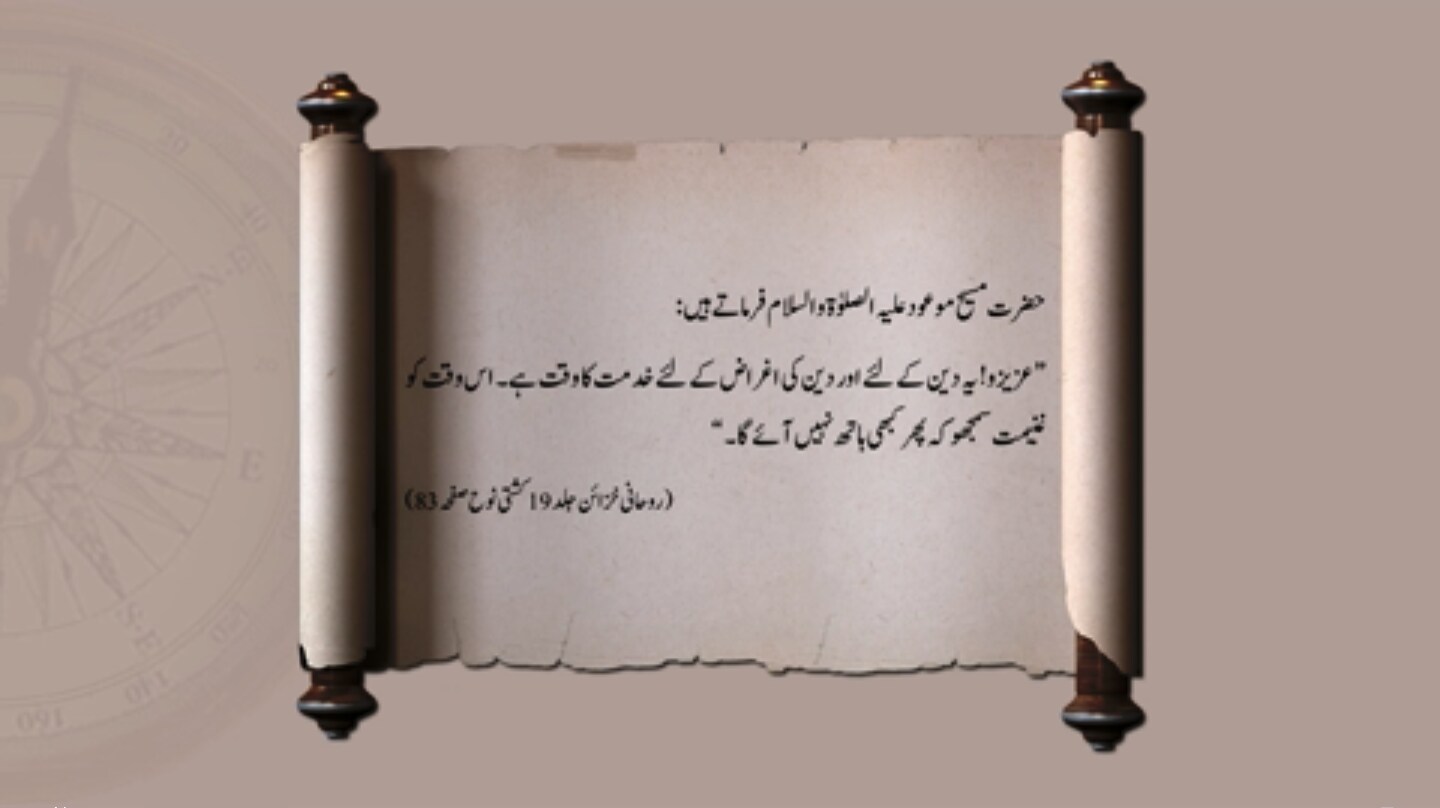 حضرت مسیح موعود علیہ الصلوٰۃ والسلام فرماتے ہیں:
”عزیزو! یہ دین کے لئے اور دین کی اغراض کے لئے خدمت کا وقت ہے۔ اس وقت کو
غنیمت سمجھو کہ پھر کبھی ہاتھ نہیں آئے گا۔“
(روحانی خزائن جلد 19 کشتی نوح صفحہ 83)
E
S·E
140
160